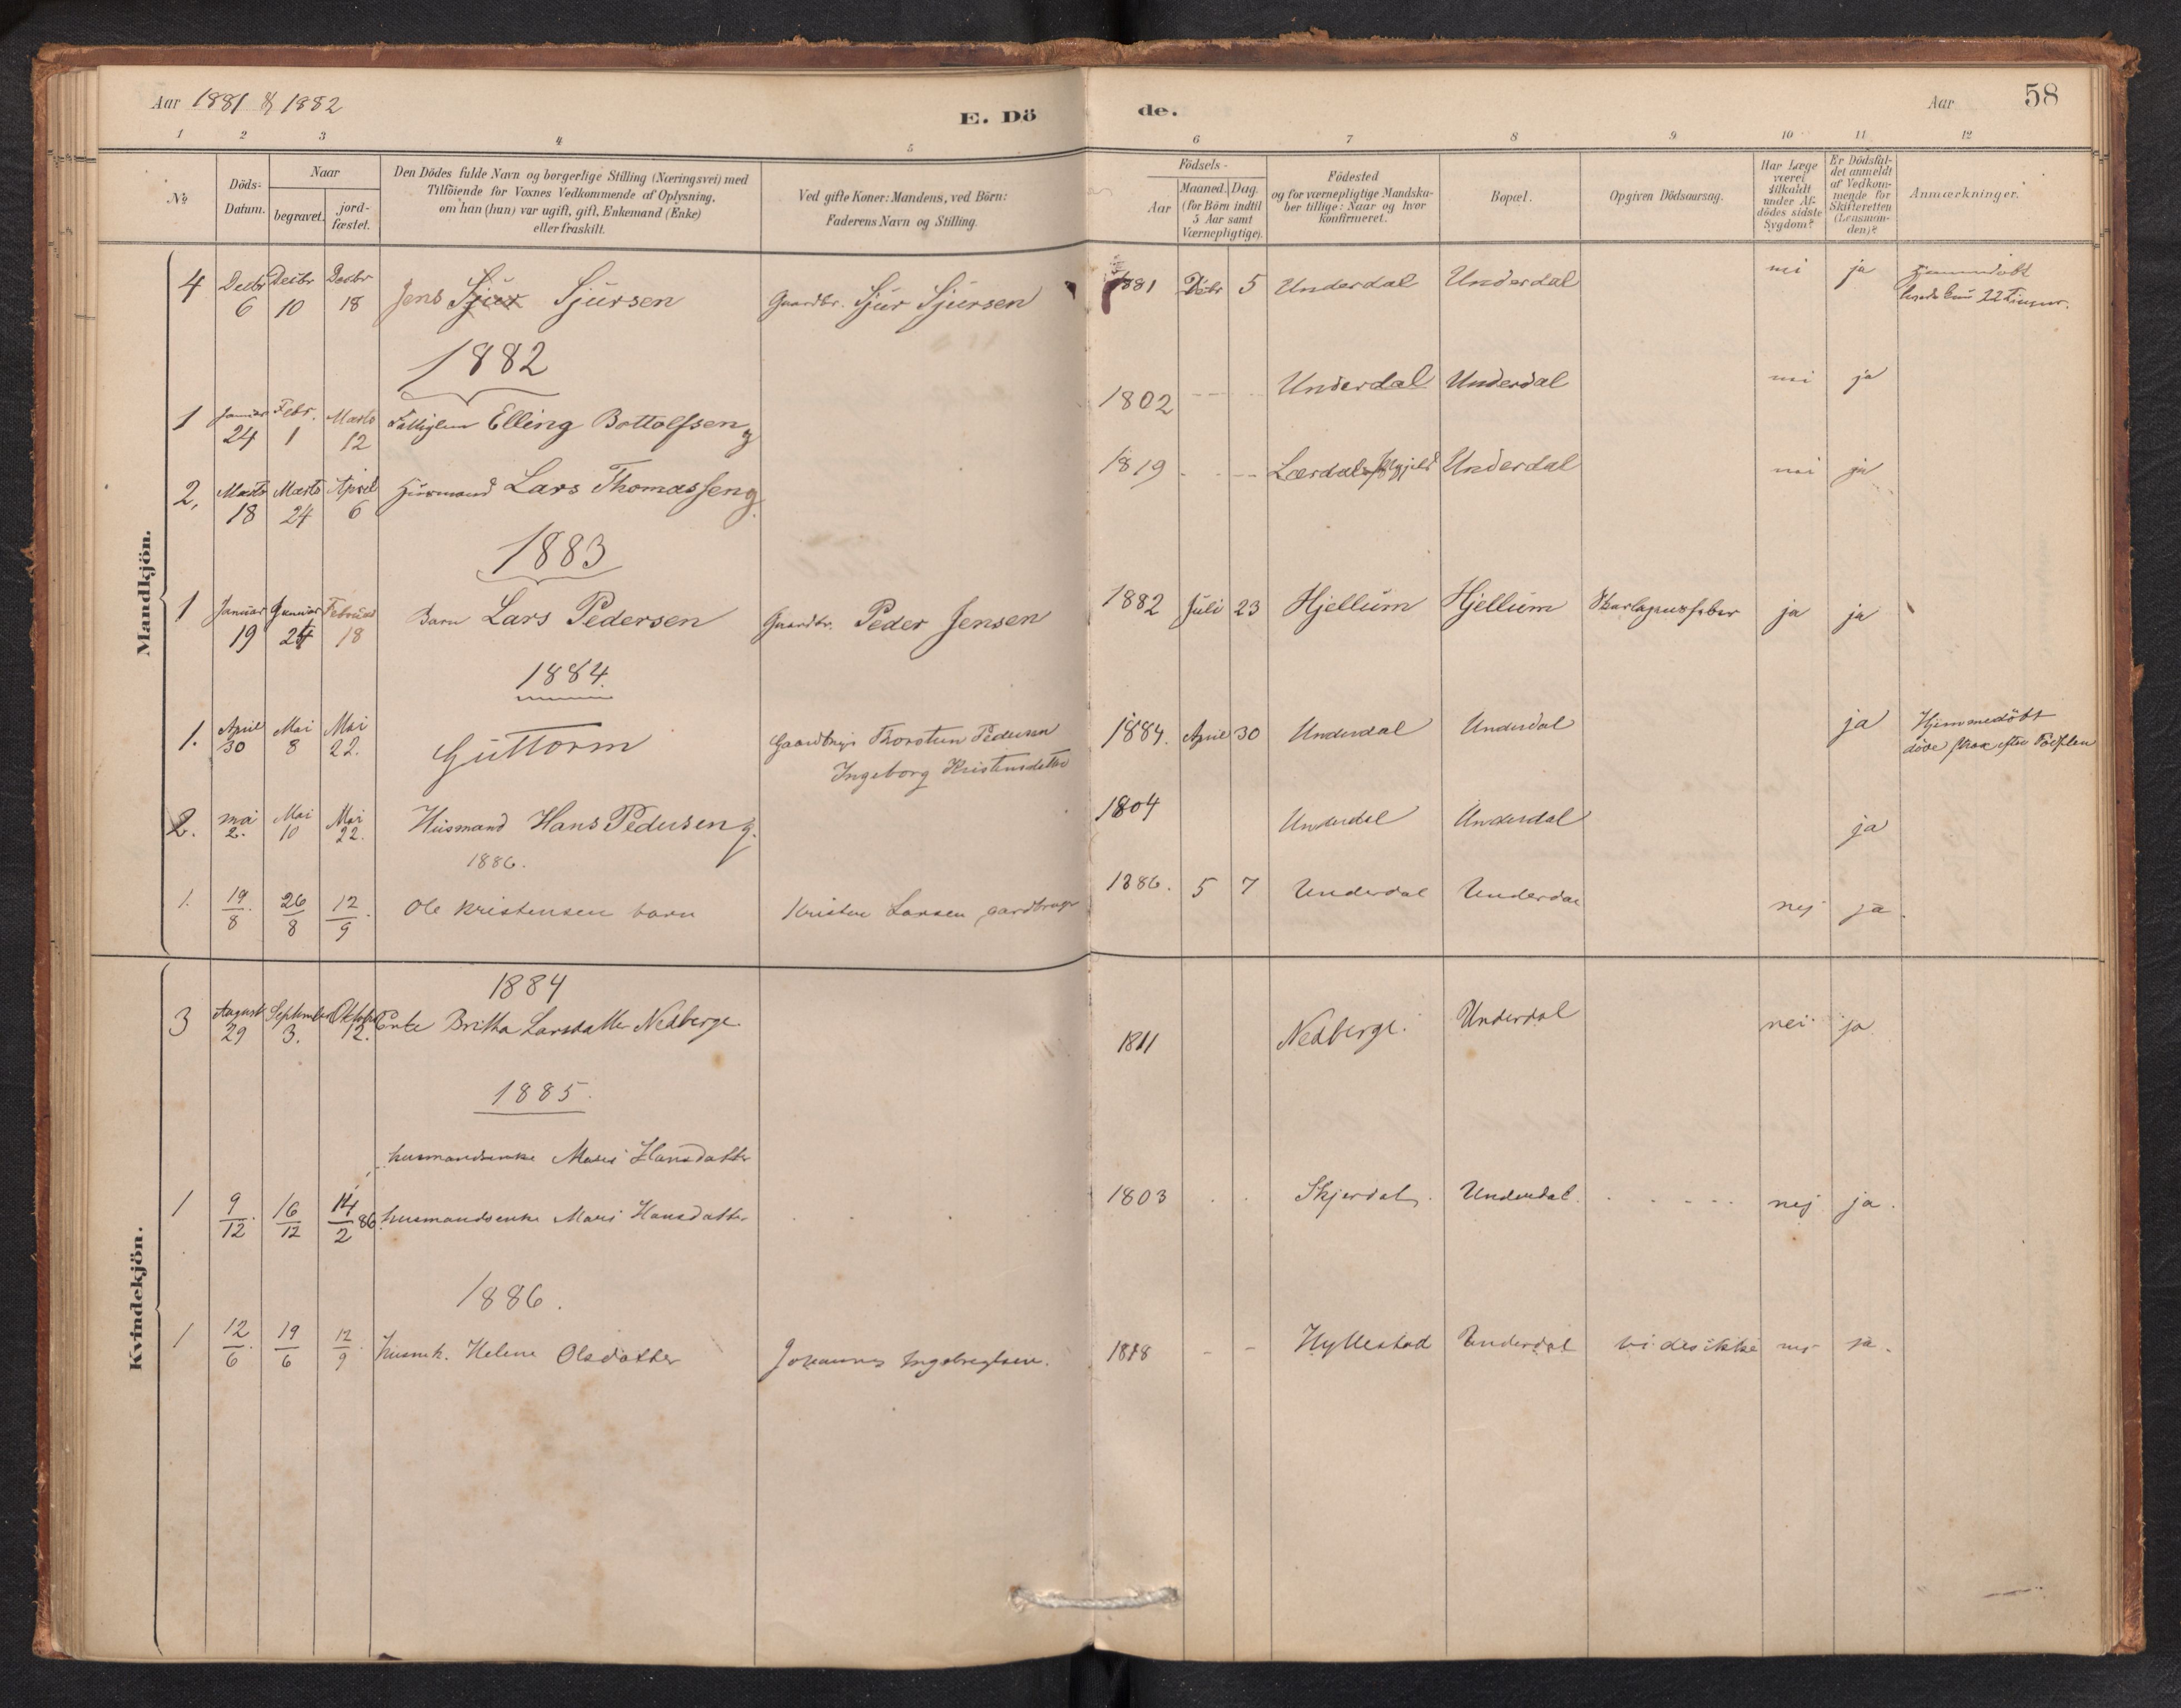 Aar 1881 & 1882
E. Dö de.
Aar 58
1 2 3 4 5 6 7 8 9 10 11 12
No
Döds-
Datum.
Naar
begravet.
jord-
fæstet.
Den Dödes fulde Navn og borgerlige Stilling (Næringsvei) med
Tilföiende for Voxnes Vedkommende af Oplysning,
om han (hun) var ugift, gift, Enkemand (Enke)
eller fraskilt.
Ved gifte Koner: Mandens, ved Börn:
Faderens Navn og Stilling.
Födsels-
Aar
Maaned. Dag.
(for Börn indtil
5 Aar samt
Værnepligtige).
Födested
og for værnepligtige Mandska-
ber tillige: Naar og hvor
konfirmeret.
Bopæl.
Opgiven Dödsaarsag.
Har Læge
været
tilkaldt
under Af-
dödes sidste
Sygdom?
Er Dödsfal-
det anmeldt
af Vedkom-
mende for
Skifteretten
(Lensman-
den)?
Anmærkninger.
Mandkjön.
4 Decbr 6 Decbr 10 Decbr 18 Jens Sjur Sjursen Gaardbr. Sjur Sjursen 1881 Dcbr 5 Underdal Underdal nei ja hjemmedöbt
levede kun 22 Timer.
1882
1 Januar 24 Febr. 1 Marts 12 Fattiglem Elling Bottolfsen g 1802 Underdal Underdal nei ja
2, Marts 18 Marts 24 April 6 Husmand Lars Thomassen g. 1819 Lærdals Underdal nei ja
1883
1 Januar 19 Januar 24 Februar 18 Barn Lars Pedersen Gaardbr. Peder Jensen 1882 Juli 23 Hjellum Hjellum Skarlagensfeber ja ja
1884
1. April 30 Mai 8 Mai 22. Guttorm Gaardbrgr Thorsten Pedersen
Ingeborg Kristensdatter 1884. April 30 Underdal Underdal ja Hjemmedöbt
döde strax efter Födslen
2. Mai 2. Mai 10 Mai 22. Husmand Hans Pedersen g. 1804 Underdal Underdal ja
1886.
1. 19/8. 26/8 12/9. Ole Kristensen barn Kristen Larsen gardbruger 1886. 5 7 Underdal Underdal nej ja.
Kvindekjön.
1884
3 August 29 September 3. Oktober 12. Enke Britha Larsdatter Nedberge. 1811 Nedberge. Underdal nei ja
1885.
husmandsenke Mari Hansdatter
1 9/12. 16/12 14/2 86 husmandsenke Mari Hansdatter 1803 Skjerdal. Underdal. nej ja.
1886.
1 12/6. 19/6 12/9. husmk. Helene Olsdatter Johannes Ingebregtsen. 1818 - - Hyllestad Underdal vides ikke nej ja.